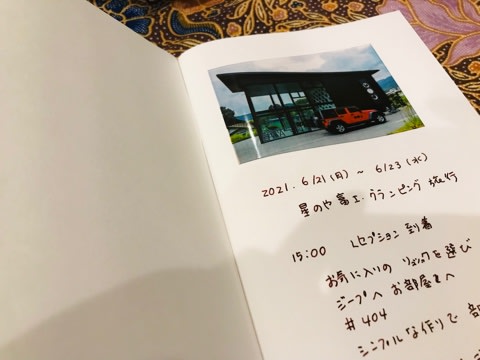 2021. 6/21(月) ~ 6/23(水)
星のや富士・グランピング 旅行
15:00 レセプション到着
お気に入りの リュックを選び
ジープへ お部屋まへ
#404
シンプルな作りで 部